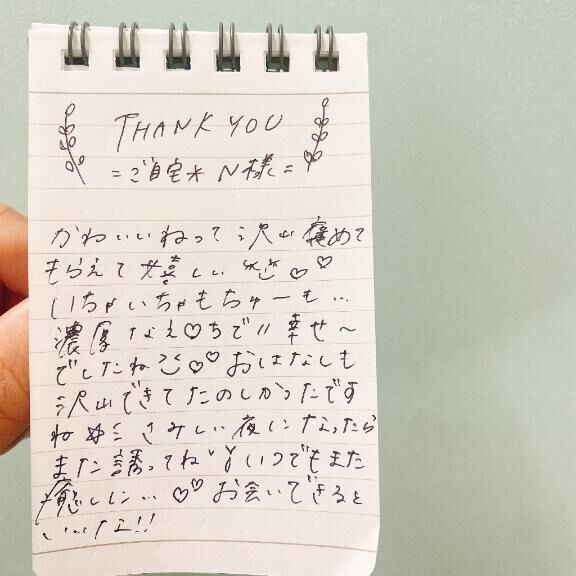 THANK YOU
=ご自宅* N様=
かわいいねって沢山褒めて
もらえて嬉しい ♡♡
いちゃいちゃもちゅーも…
濃厚なえ♡ちで!! 幸せ〜
でしたね ♡♡ おはなしも
沢山できてたのしかったです
ね さみしい夜になったら
また誘ってね いつでもまた
癒しに… ♡♡ お会いできると
いいな!!